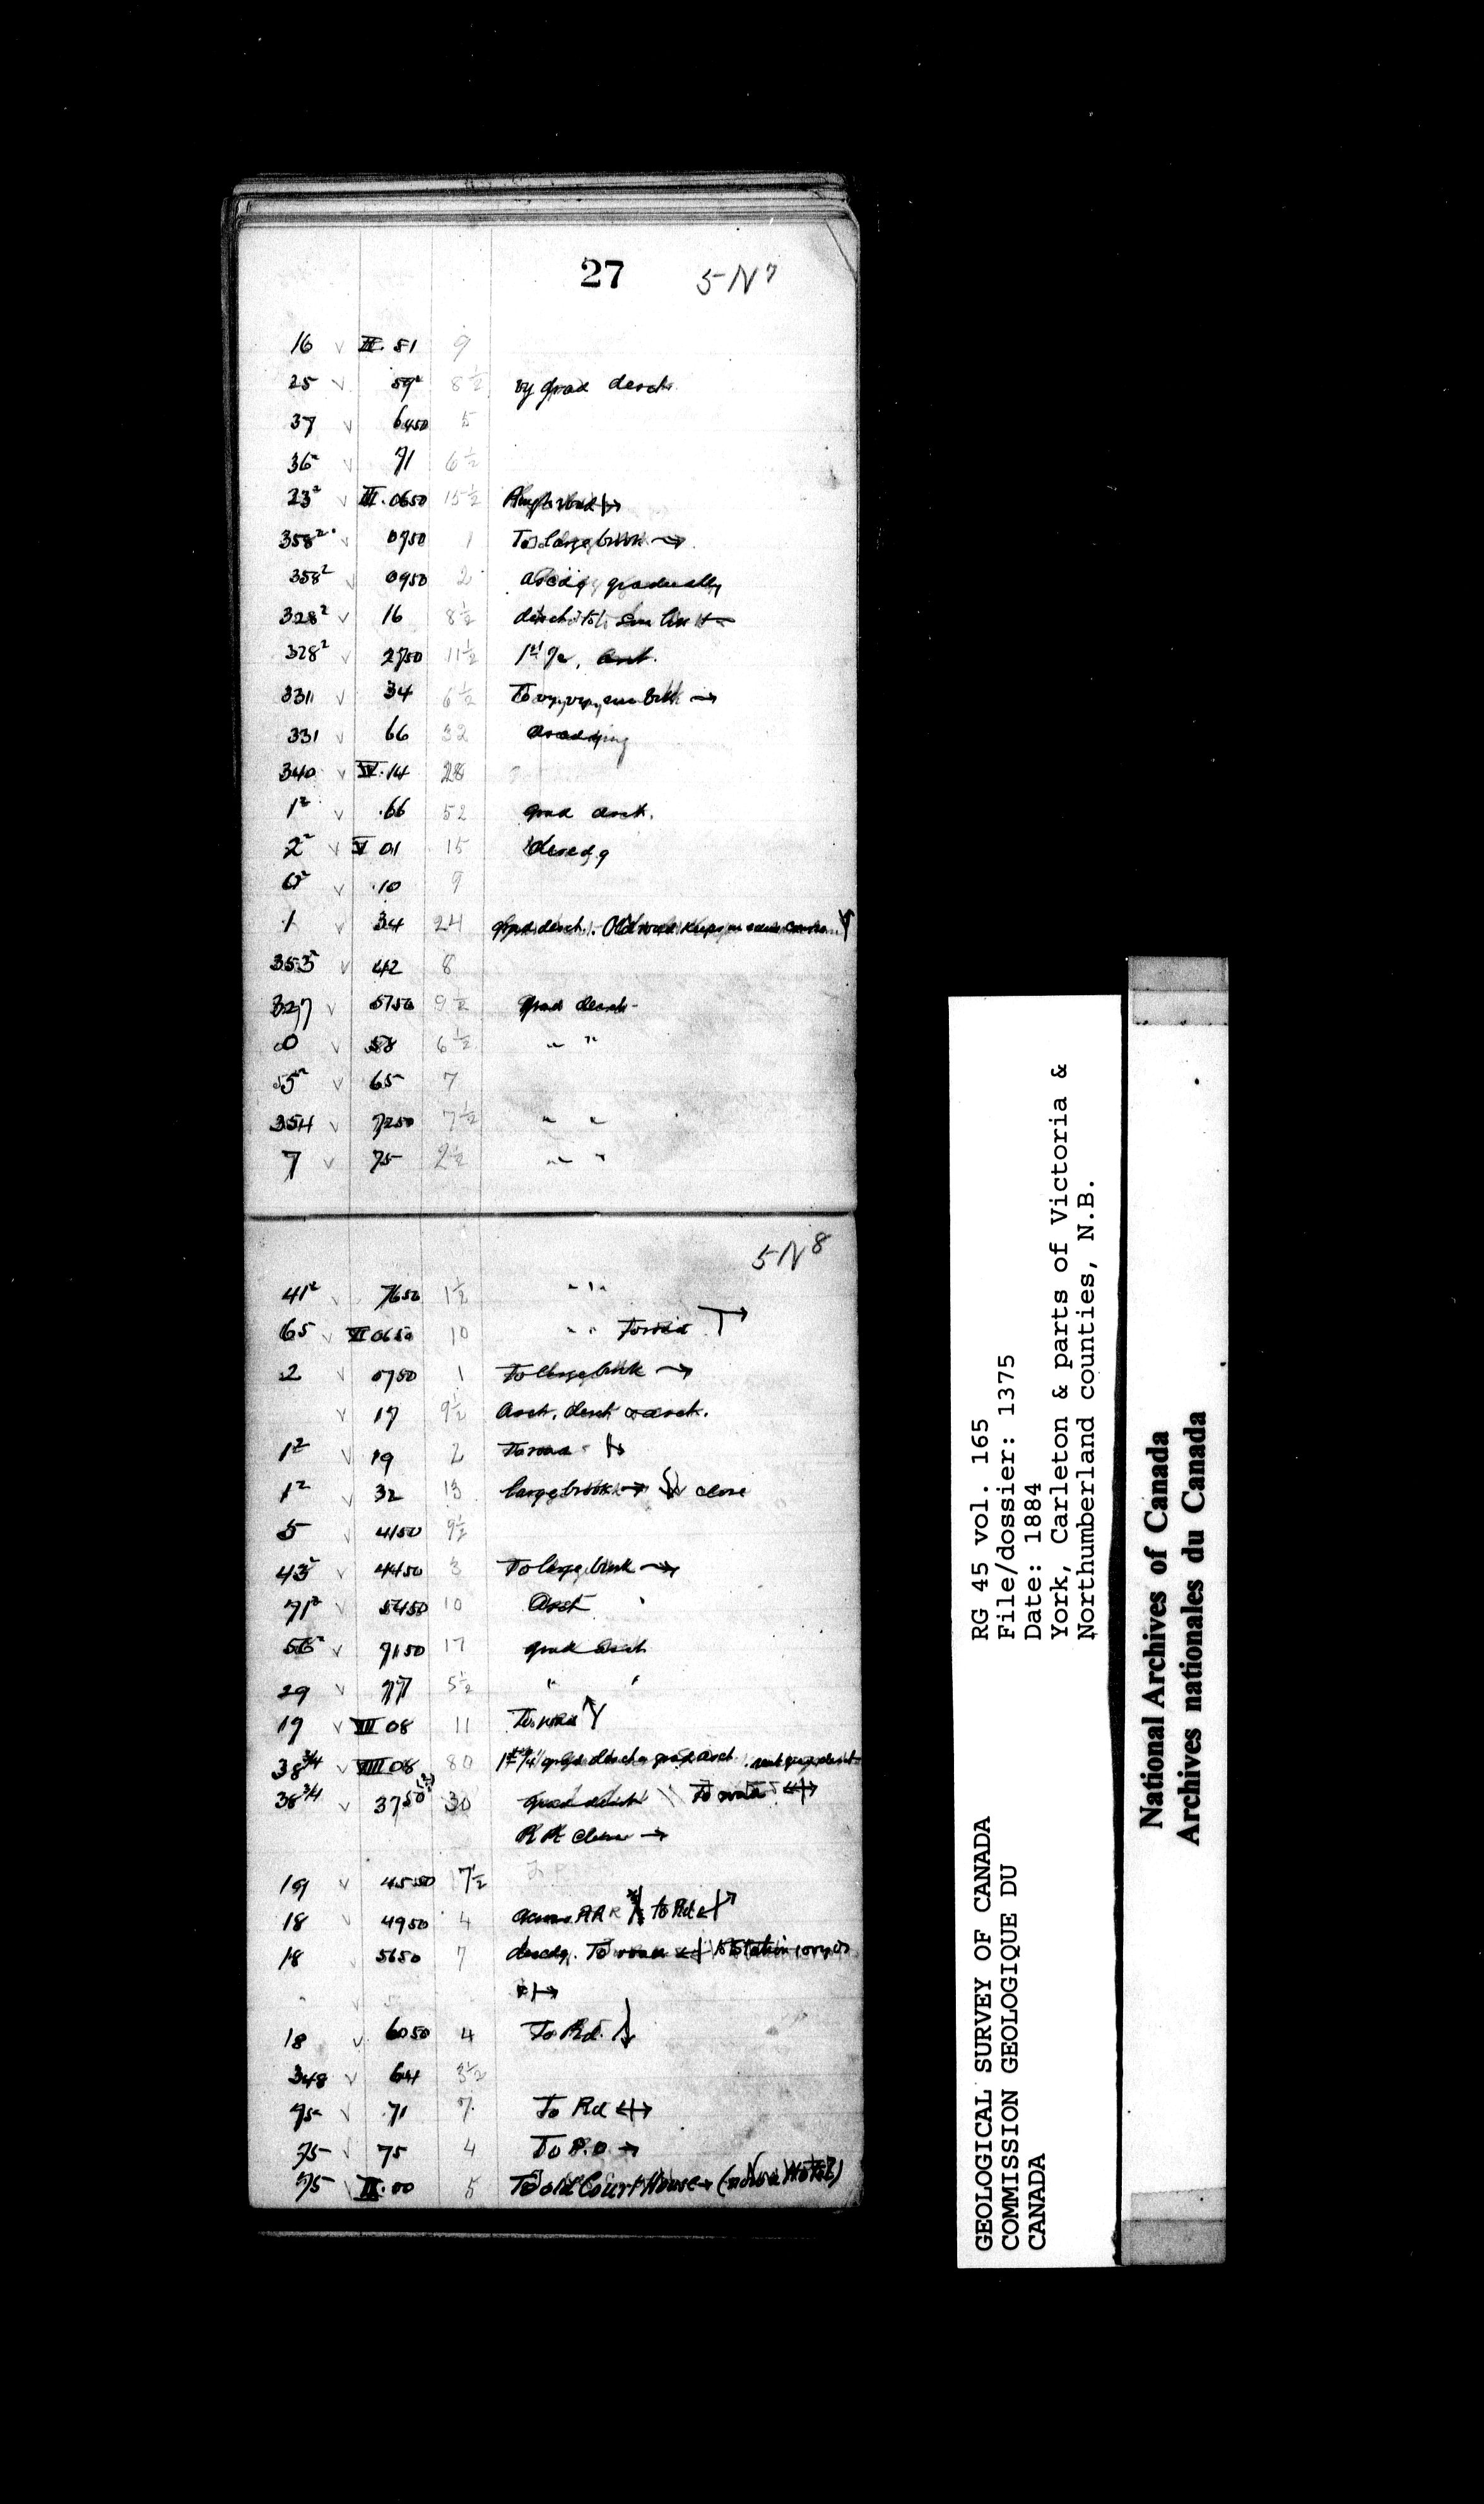 27 5 N 7
16 v II. 51 9
25 v 59² 8½ vy grad desct.
37 v 6450 5
36² v 71 6½
23² v III. 0650 15½
358² v 0750 1 To large brook →
358² v 0950 2 ascdg gradually
328² v 16 8½
328² v 2750 11½ asct.
331 v 34 6½ To vy, vy, sm brk →
331 v 66 32 ascending
340 v IV. 14 28
1² v .66 52 grad asct.
2² v V 01 15 descdg
6² v .10 9
1 v 34 24 grad desct. Old road keeps on same course
353² v 42 8
327 v 5150 9½ grad desct.
0 v 58 6½ " "
55² v 65 7
354 v 7250 7½ " "
7 v 75 2½ " "
5 N 8
41² v 7650 1½ " "
65 v VI 0650 10 " " To road
2 v 0750 1 To large brook →
v 17 9½ Asct. desct & asct.
1² v 19 2 To road
1² v 32 13 large brook → close
5 v 4150 9½
43² v 4450 3 To large brook →
71² v 5450 10 Asct
56² v 7150 17 grad asct
29 v 77 5½ " "
19 v VII 08 11 To road
38 3/4 v VIII 08 80
38 3/4 v 3750 30 grad desct To road
RR close →
19 v 4550 7½
18 v 4950 4 across RR to Rd
18 v 5650 7 descdg. To road to Station
18 v 6050 4 To Rd.
348 v 64 3½
75 v .71 7 To Rd
75 v 75 4 To P.O →
75 v IX. 00 5 To old Court House → (now a Hotel)
GEOLOGICAL SURVEY OF CANADA
COMMISSION GEOLOGIQUE DU
CANADA
RG 45 vol. 165
File/dossier: 1375
Date: 1884
York, Carleton & parts of Victoria &
Northumberland counties, N.B.
National Archives of Canada
Archives nationales du Canada